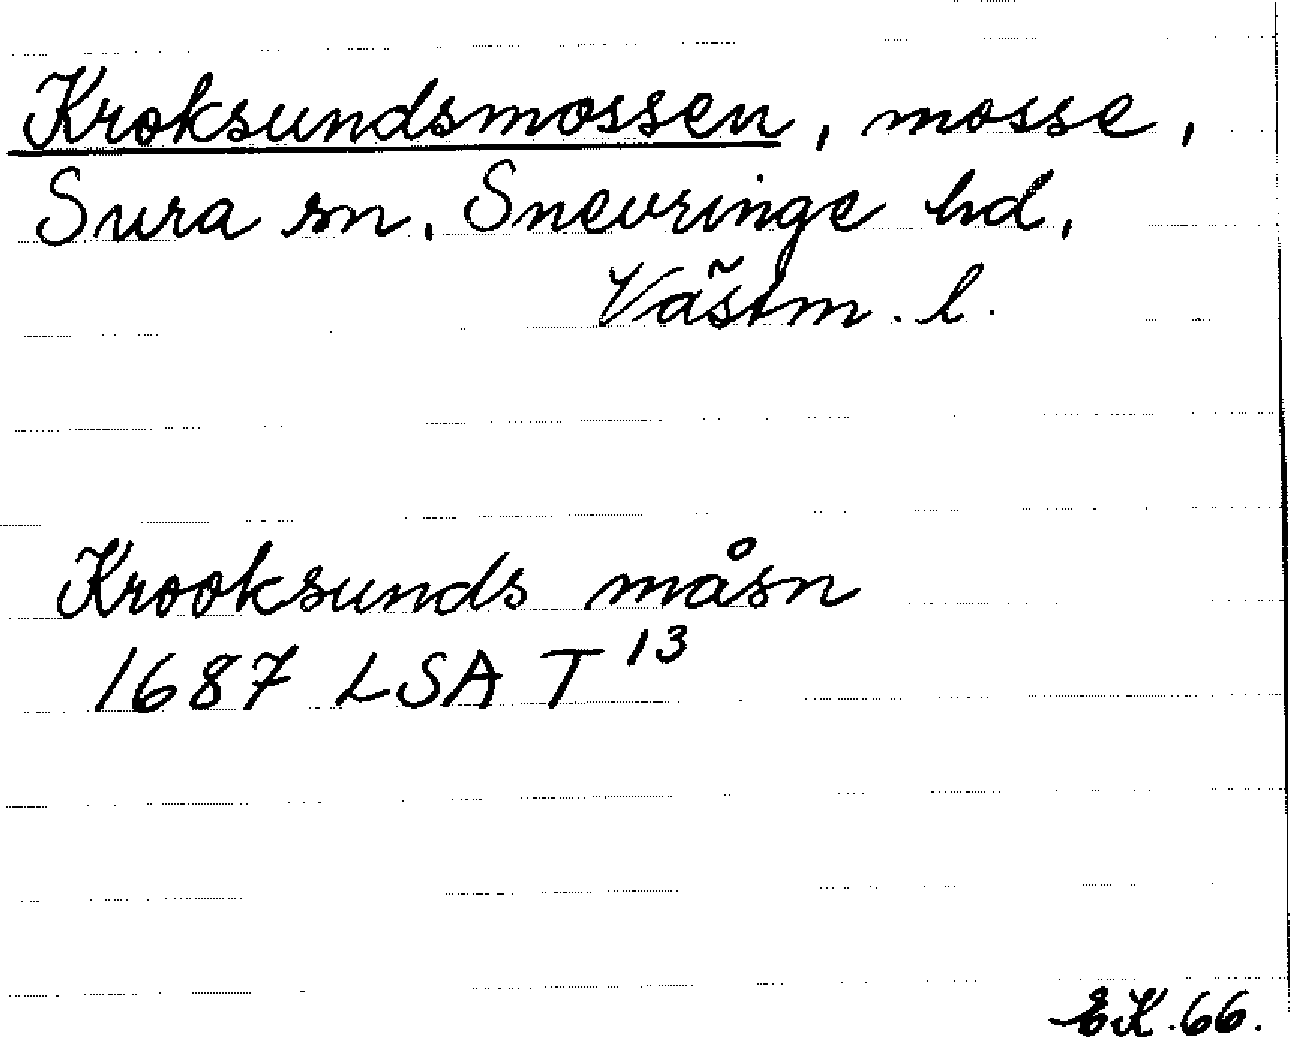 Kroksundsmossen, mosse,
Sura sn, Snevringe hd,
Västm. l.
Krooksunds måsn
1687 LSA T 13
EK. 66.